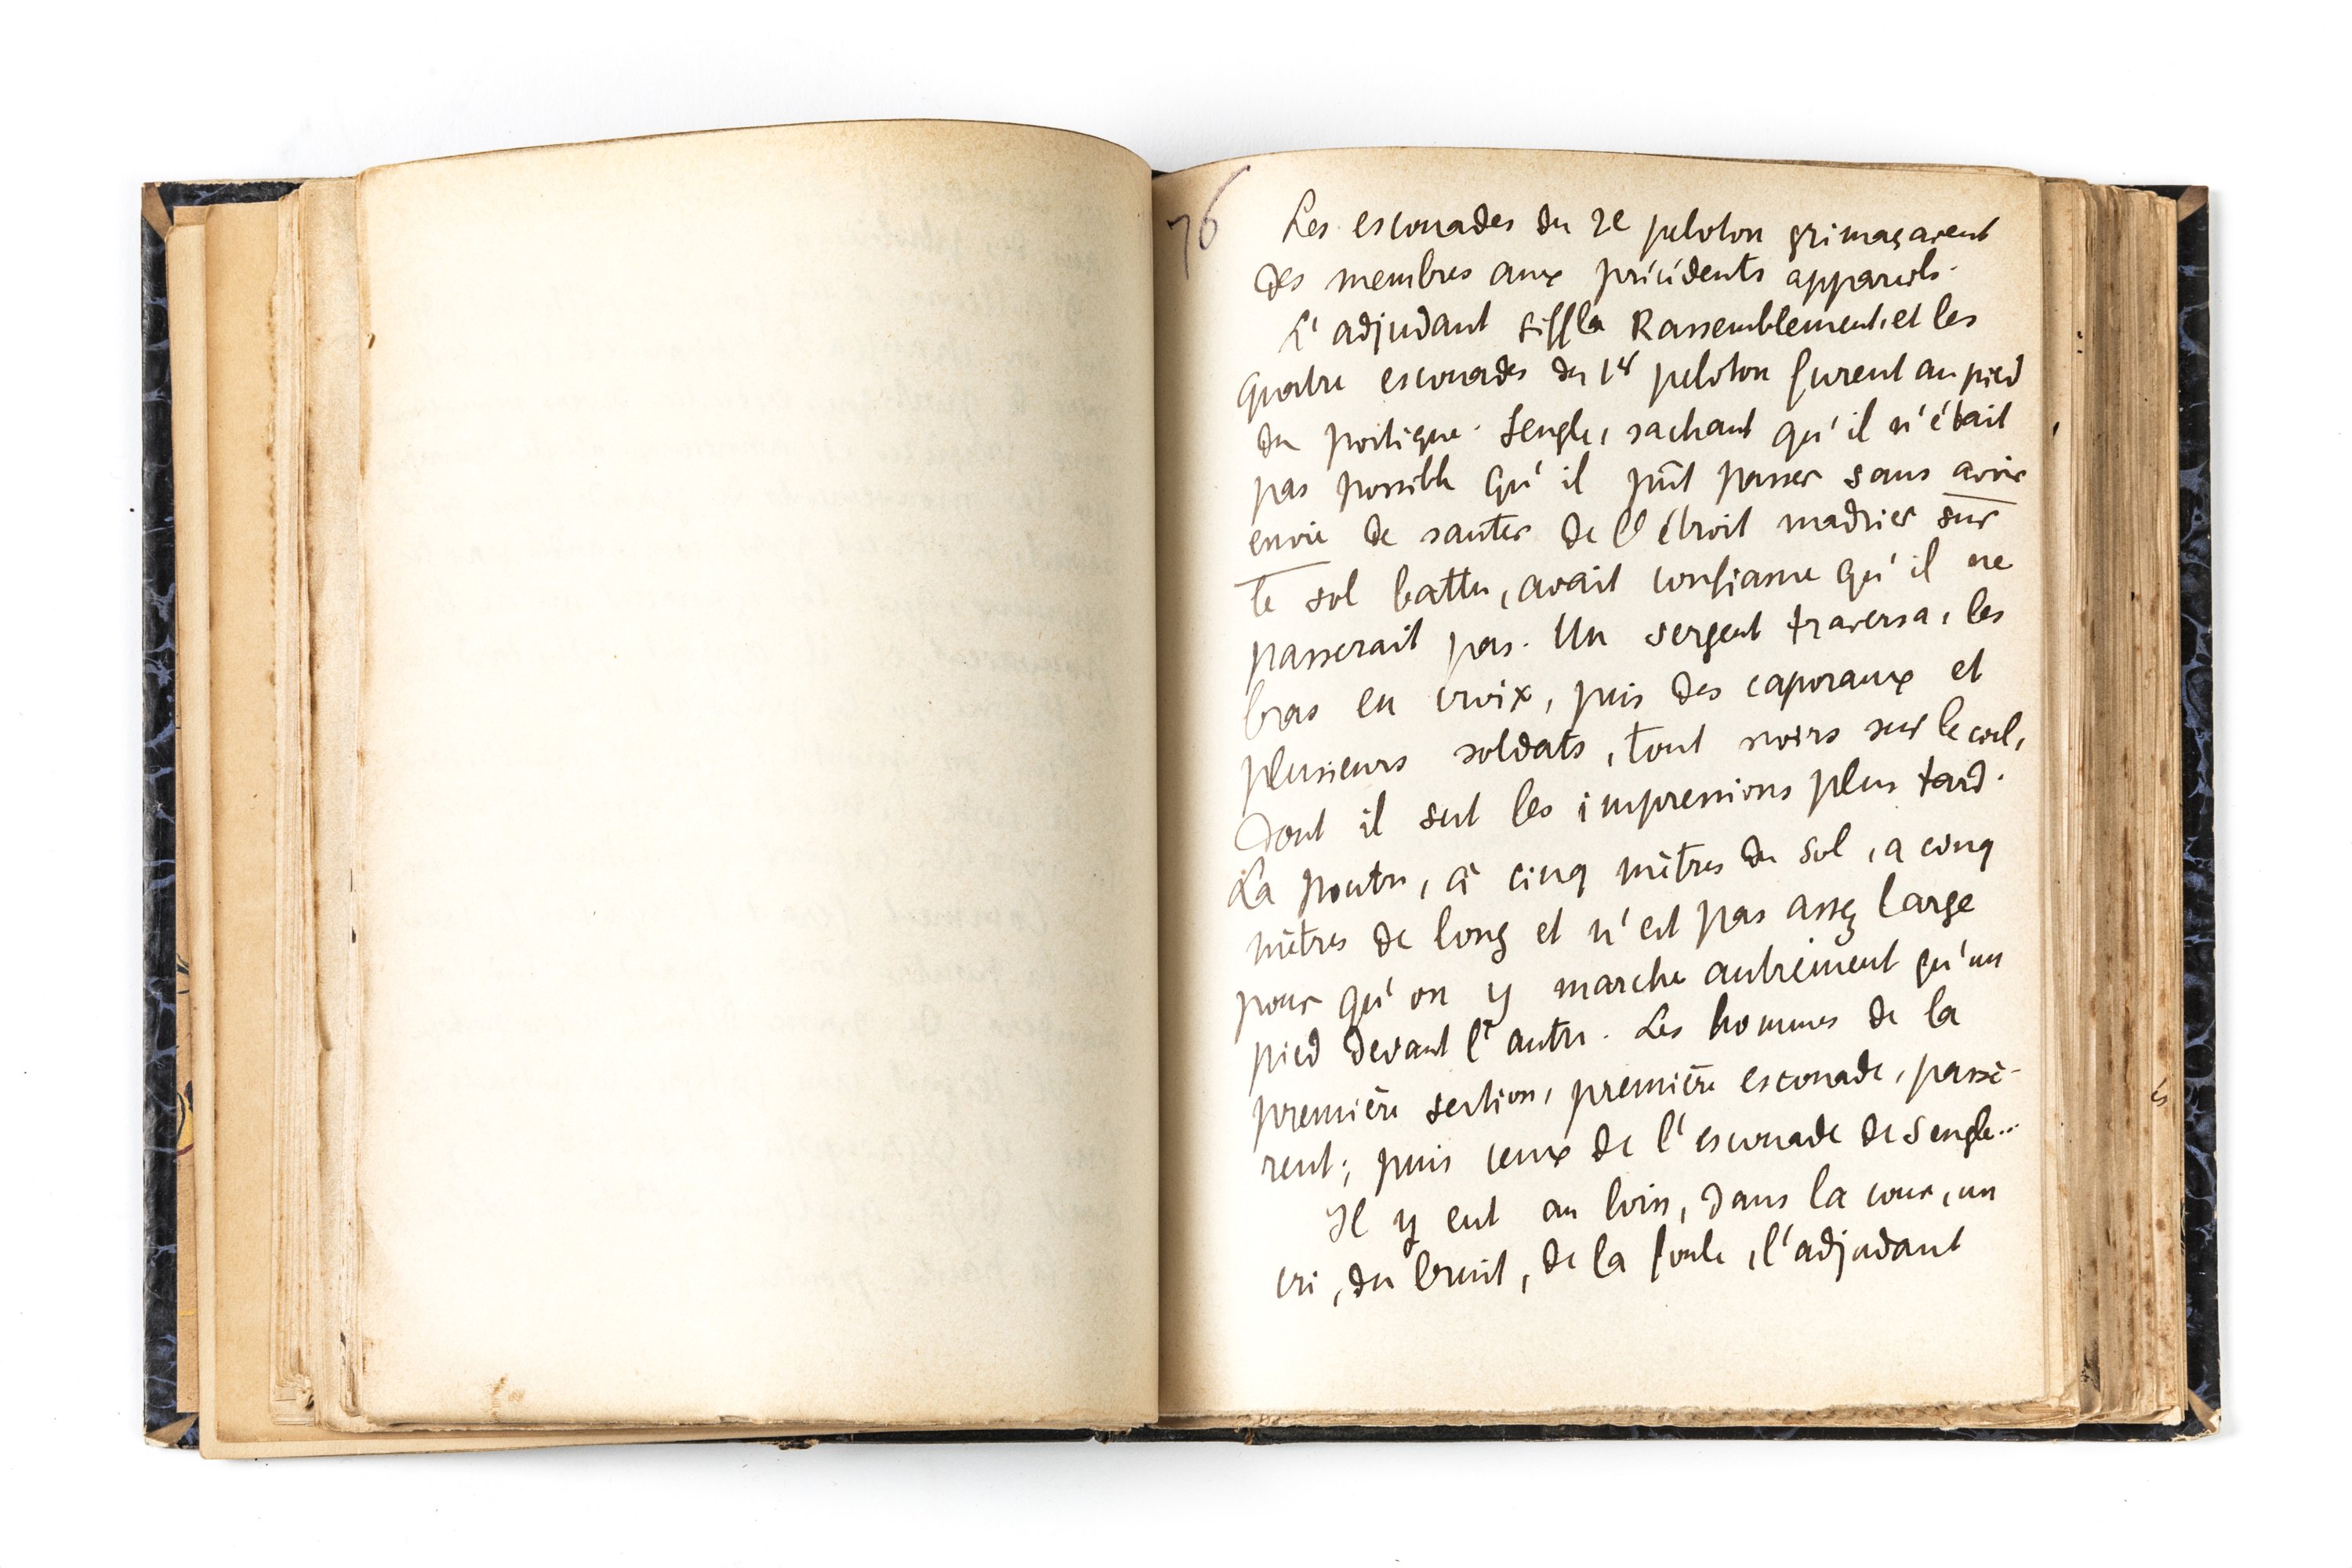 76
Les escouades du 2e peloton grimaçaient
des membres aux précédents appareils.
L'adjudant siffla Rassemblement, et les
quatre escouades du 1er peloton furent au pied
du portique. Sengle, sachant qu'il n'était
pas possible qu'il pût passer sans avoir
envie de sauter de l'étroit madrier sur
le sol battu, avait confiance qu'il ne
passerait pas. Un sergent traversa, les
bras en croix, puis des caporaux et
plusieurs soldats, tout noirs sur le ciel,
dont il sut les impressions plus tard.
La poutre, à cinq mètres du sol, a cinq
mètres de long et n'est pas assez large
pour qu'on y marche autrement qu'un
pied devant l'autre. Les hommes de la
première section, première escouade, passè-
rent; puis ceux de l'escouade de Sengle...
Il y eut au loin, dans la cour, un
cri, du bruit, de la foule, l'adjudant